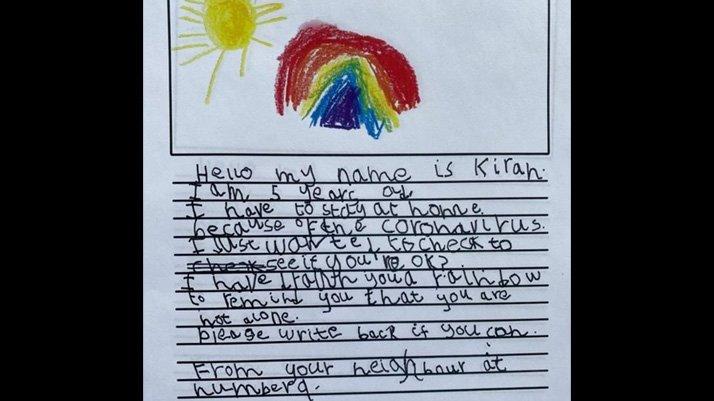 Hello my name is Kiran.
I am 5 years old
I have to stay at home
because of the coronavirus.
I Just wanted to check to
see if you're ok?
I have drawn you a rainbow
to remind you that you are
not alone.
please write back if you can.
From your neighbour at
number 9.